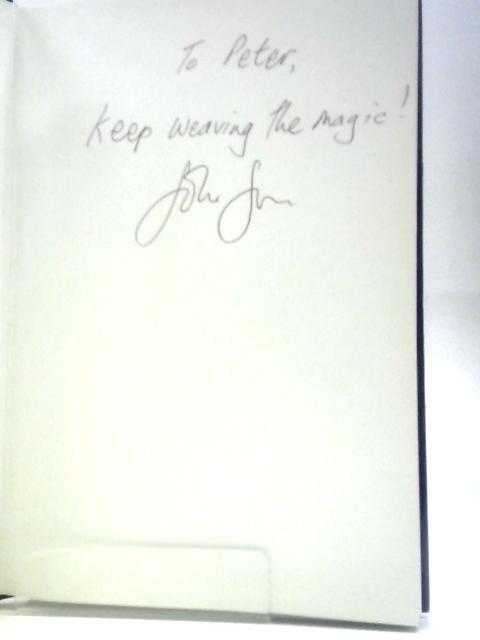 To Peter,
Keep weaving the magic!